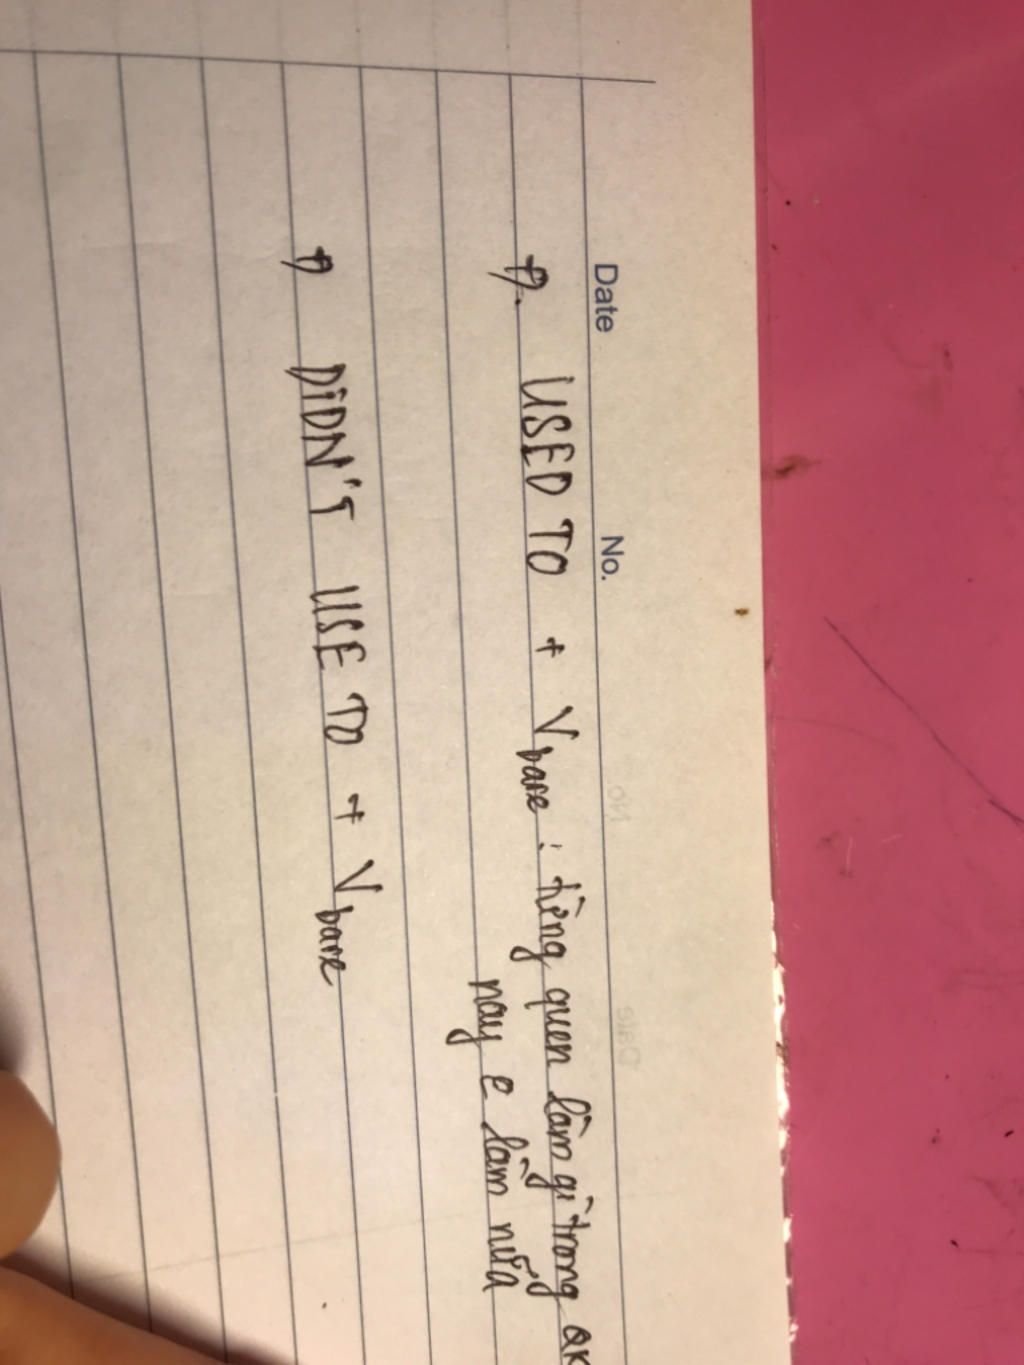 Date No.
USED TO + Vbare : từng quen làm gì trong QK
nay làm nữa
DIDN'T USE TO + Vbare